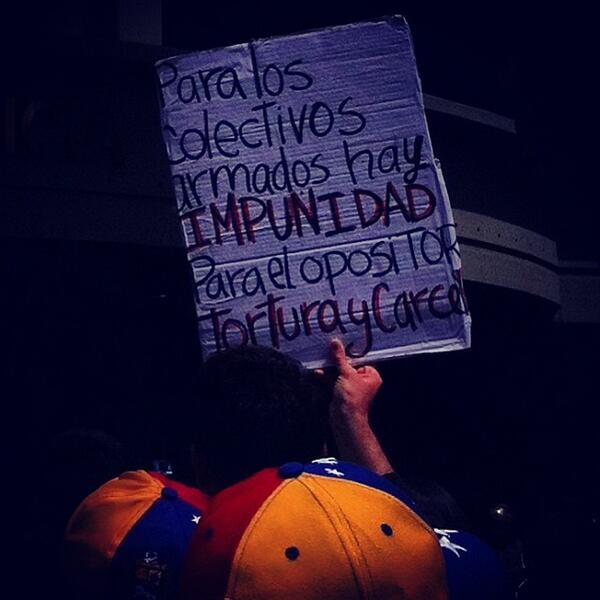 Para los
Colectivos
armados hay
IMPUNIDAD
Para el oposiTOR
Tortura y Carcel